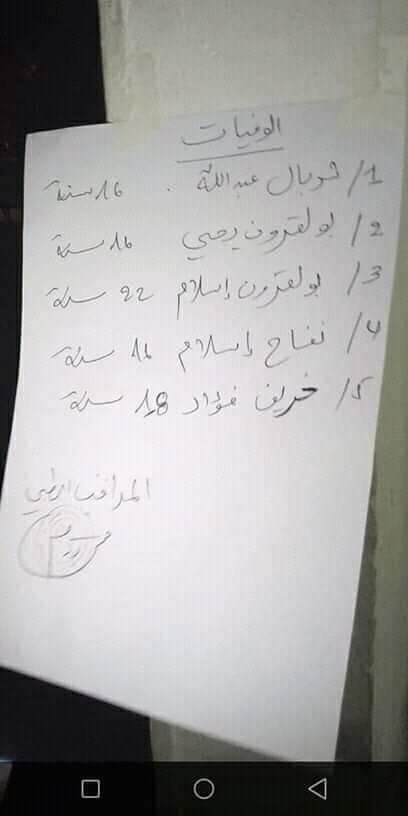 الوفيات
1/ شوبال عبد الله . 16 سنة
2/ بولقرون يحيى 16 سنة
3/ بولقرون إسلام 22 سنة
4/ نفاح إسلام 16 سنة
5/ خريف فؤاد 18 سنة
المراقب الطبي